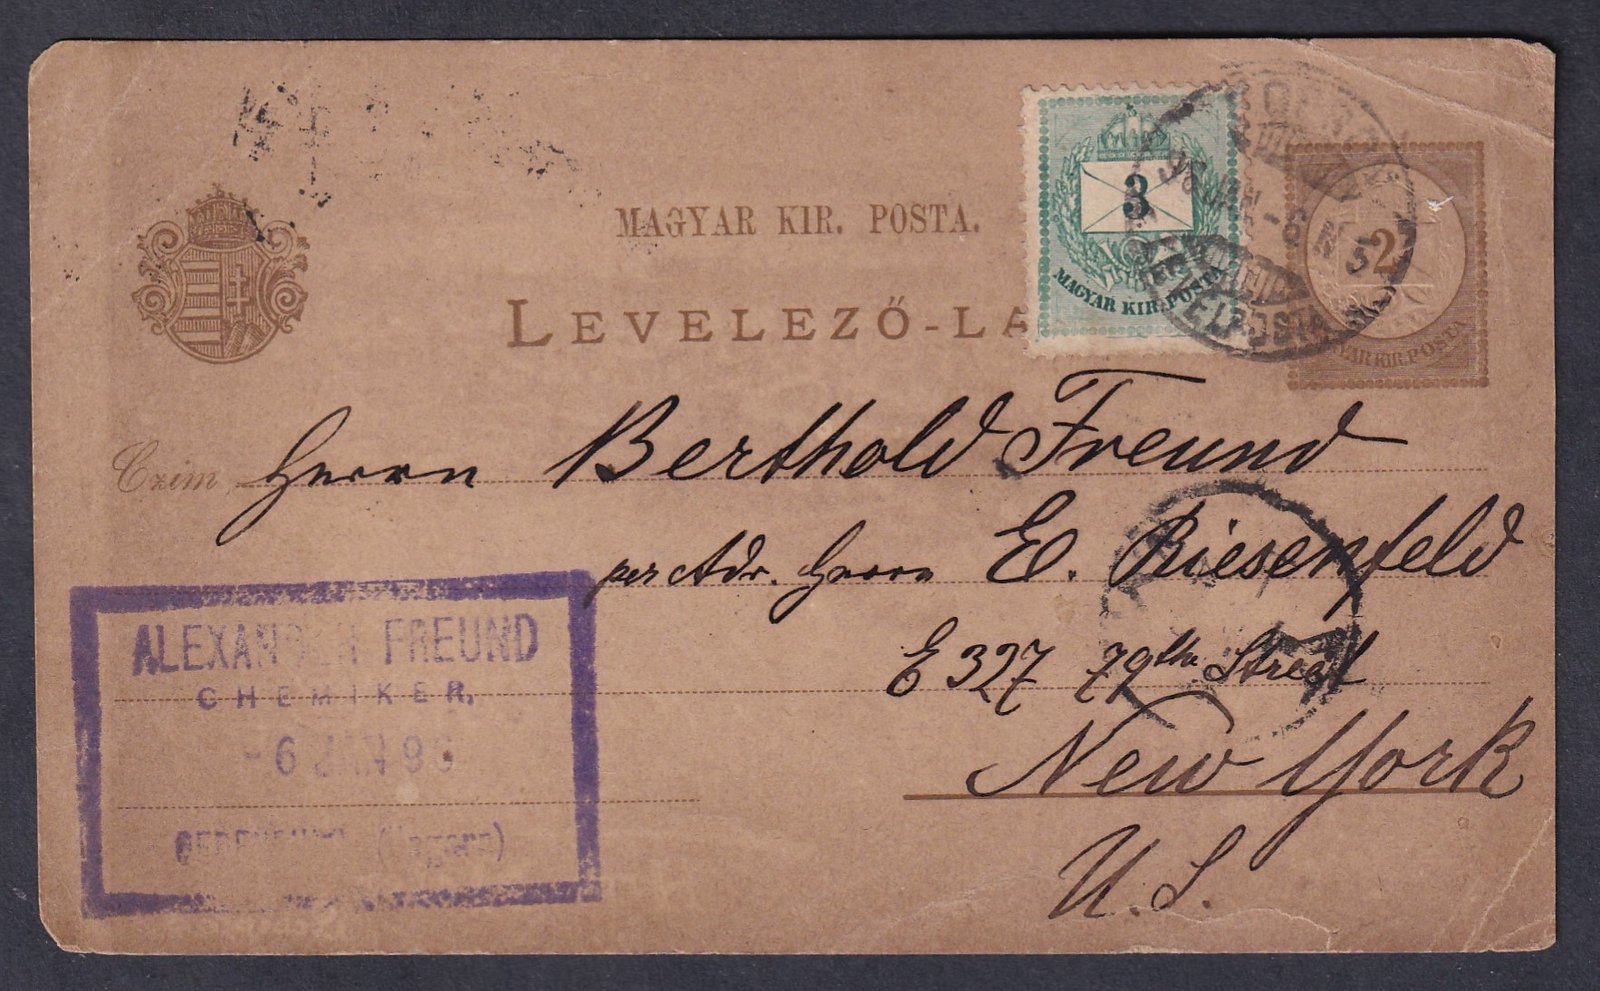 MAGYAR KIR. POSTA.
LEVELEZŐ-LA
3
MAGYAR KIR. POSTA
96 JAN -6 N 5
2
MAGYAR KIR. POSTA
Czim
Herrn Berthold Freund
per Adr. Herrn E. Riesenfeld
E 327 79th Street
New York
U. S.
ALEXANDER FREUND
CHEMIKER.
-6 JAN 96